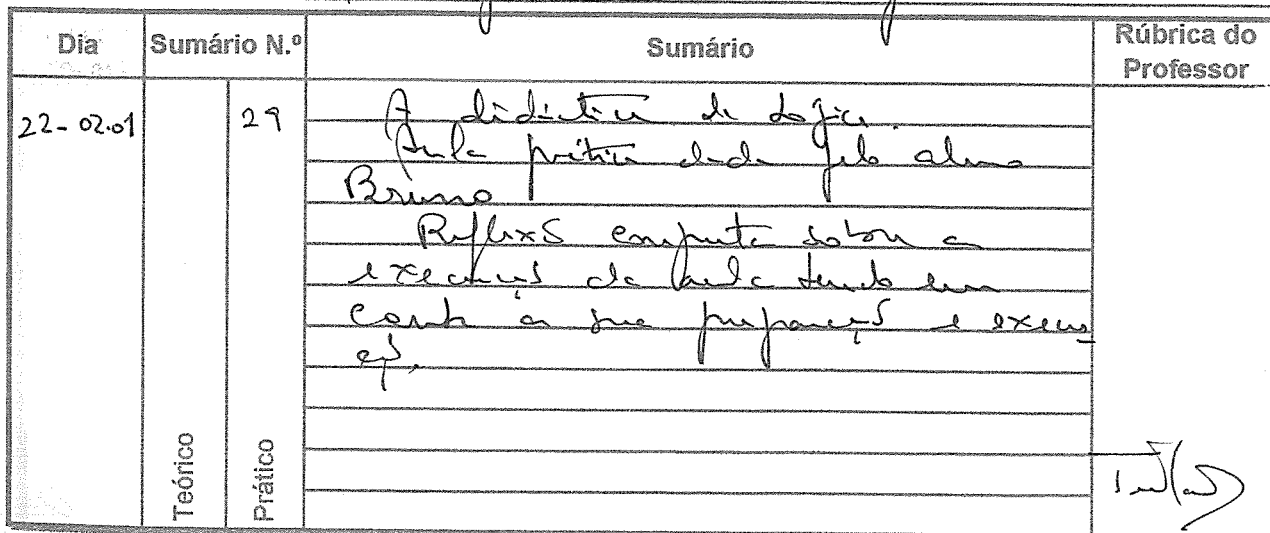 Dia Sumário N.º Sumário Rúbrica do Professor
22-02.01 29 A didáctica da Lógica.
Aula prática dada pelo aluno
Bruno
Reflexão conjunta sobre a
execução da aula tendo em
conta a sua preparação e execu
ção.
Teórico Prático